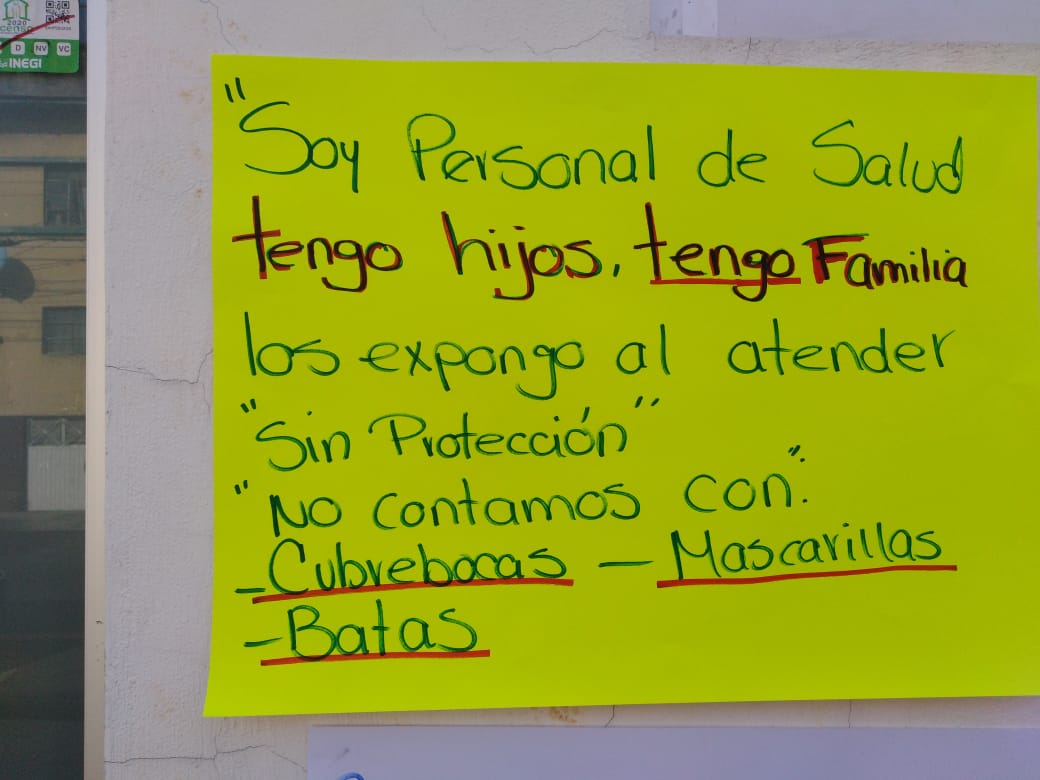 2020
censo
D NV VC
INEGI
"Soy Personal de Salud
tengo hijos, tengo Familia
los expongo al atender
"Sin Protección"
"No contamos con":
- Cubrebocas - Mascarillas
- Batas